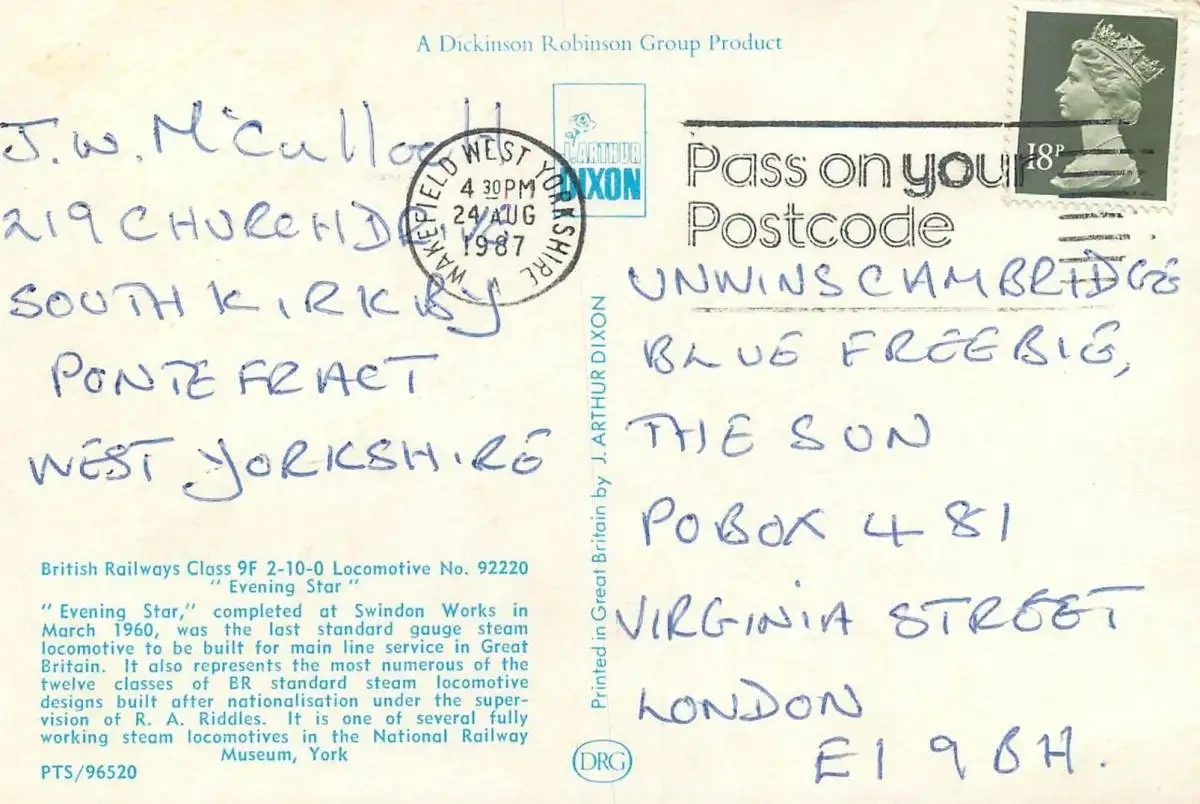 A Dickinson Robinson Group Product
J.W. McCulloch
219 CHURCH DRIVE
SOUTH KIRKBY
PONTEFRACT
WEST YORKSHIRE
J. ARTHUR
DIXON
WAKEFIELD WEST YORKSHIRE
4 30PM
24 AUG
1987
Pass on your
Postcode
18P
UNWINS CAMBRIDGE
BLUE FREEBIE,
THE SUN
PO BOX 481
VIRGINIA STREET
LONDON
E1 9BH.
Printed in Great Britain by J. ARTHUR DIXON
British Railways Class 9F 2-10-0 Locomotive No. 92220
"Evening Star"
"Evening Star," completed at Swindon Works in
March 1960, was the last standard gauge steam
locomotive to be built for main line service in Great
Britain. It also represents the most numerous of the
twelve classes of BR standard steam locomotive
designs built after nationalisation under the super-
vision of R. A. Riddles. It is one of several fully
working steam locomotives in the National Railway
Museum, York
PTS/96520
DRG